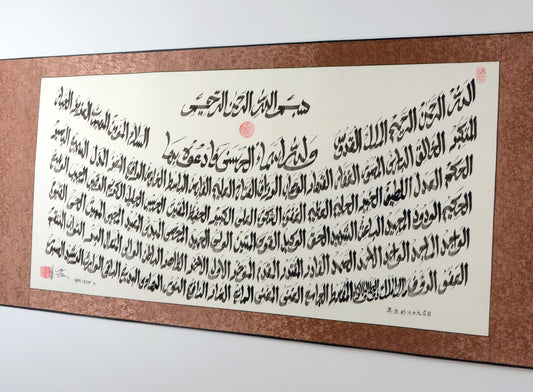 بسم الله الرحمن الرحيم
الله الرحمن الرحيم الملك القدوس ولله الأسماء الحسنى فادعوه بها السلام المؤمن المهيمن العزيز الجبار
المتكبر الخالق البارئ المصور الغفار القهار الوهاب الرزاق الفتاح العليم القابض الباسط الخافض الرافع المعز المذل السميع البصير
الحكم العدل اللطيف الخبير الحليم العظيم الغفور الشكور العلي الكبير الحفيظ المقيت الحسيب الجليل الكريم الرقيب المجيب الواسع
الحكيم الودود المجيد الباعث الشهيد الحق الوكيل القوي المتين الولي الحميد المحصي المبدئ المعيد المحيي المميت الحي القيوم
الواجد الماجد الواحد الأحد الصمد القادر المقتدر المقدم المؤخر الأول الآخر الظاهر الباطن الوالي المتعال البر التواب المنتقم
العفو الرؤوف مالك الملك ذو الجلال والإكرام المقسط الجامع الغني المغني المانع الضار النافع النور الهادي البديع الباقي الوارث الرشيد الصبور
真主的九十九